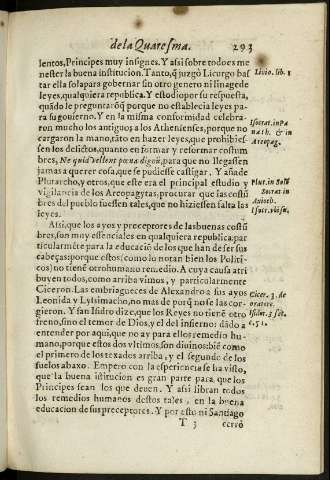 de la Quaresma. 293
lentos, Principes muy insignes. Y assi sobre todo es me
nester la buena institucion. Tanto, q̃ juzgò Licurgo bas
tar ella sola para gobernar sin otro genero ni linage de
leyes, qualquiera republica. Y esto dio por su respuesta,
quãdo le preguntarõ q̃ porque no establecia leyes pa-
ra su gouierno. Y en la misma conformidad celebra-
ron mucho los antiguos a los Athenienses, porque no
cargaron la mano, tãto en hazer leyes, que prohibies-
sen los delictos, quanto en formar y reformar costum
bres, Ne quid vellent pœna dignũ, para que no llegassen
jamas a querer cosa, que se pudiesse castigar. Y aña de
Plutarcho, y otros, que este era el principal estudio y
vigilancia de los Areopagytas, procurar que las costũ
bres del pueblo fuessen tales, que no hiziessen falta las
leyes.
Assi, que los ayos y preceptores de las buenas costũ
bres, son muy essenciales en qualquiera republica, par
ticularmẽte para la educaciõ de los que han de ser sus
cabeças: porque estos (como lo notan bien los Politi-
cos) no tienẽ otro humano remedio. A cuya causa atri
buyen todos, como arriba vimos, y particularmente
Ciceron. Las embriagueces de Alexandro a sus ayos
Leonida y Lysimacho, no mas de porq̃ no se las cor-
rigieron. Y san Isidro dize, que los Reyes no tienẽ otro
freno, sino el temor de Dios, y el del infierno: dãdo a
entender por aqui, que no ay para ellos remedio hu-
mano, porque estos dos vltimos, son diuinos: biẽ como
el primero de los texados arriba, y el segundo de los
suelos abaxo. Empero con la esperiencia se ha visto,
que la buena istitucion es gran parte para que los
Principes sean los que deuen. Y assi libran todos
los remedios humanos destos tales, en la buena
educacion de sus preceptores. Y por esto ni Santiago
T 3 cerrò
Livio. lib. 1
Isocrat. in Pa
nath. & in
Areopag.
Plut. in Solō
Socrat in
Isocr. vbi su.
Cicer. 3. de
oratore.
Isidor. 3. sēt.
c. 51.